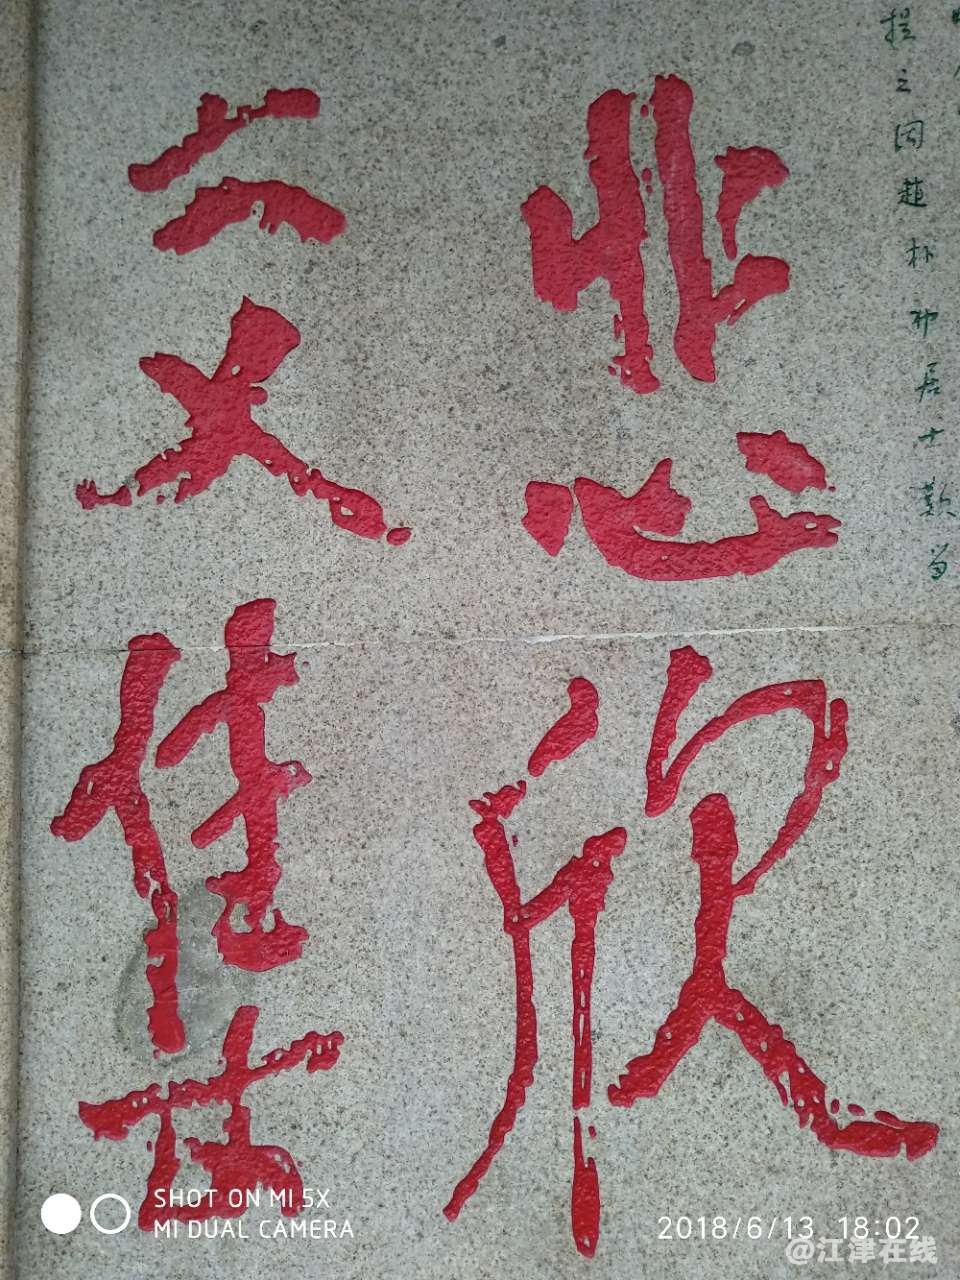 之因趙朴初居士歎
悲欣
交集
SHOT ON MI 5X
MI DUAL CAMERA
2018/6/13 18:02
@江津在线